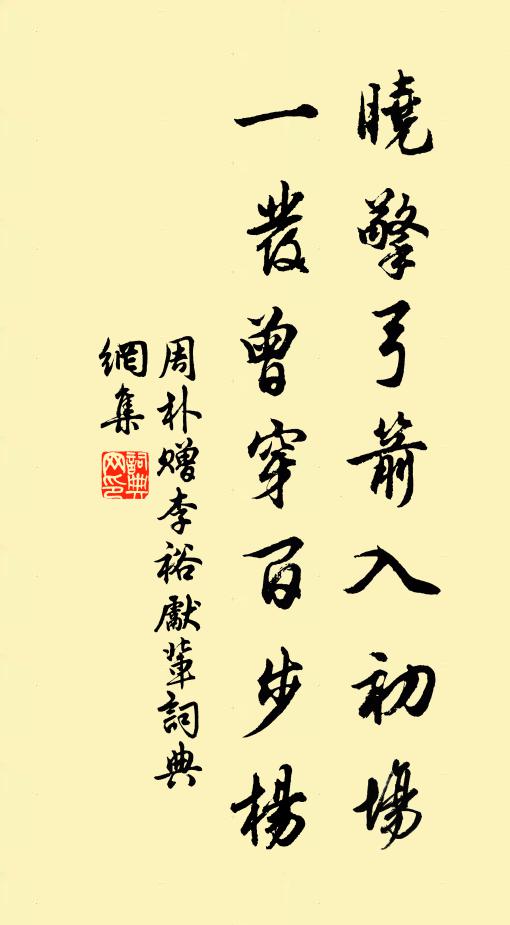 曉擎弓箭入初場
一發曾穿百步楊
周朴贈李裕獻輩詞典
網集
詞典
网印